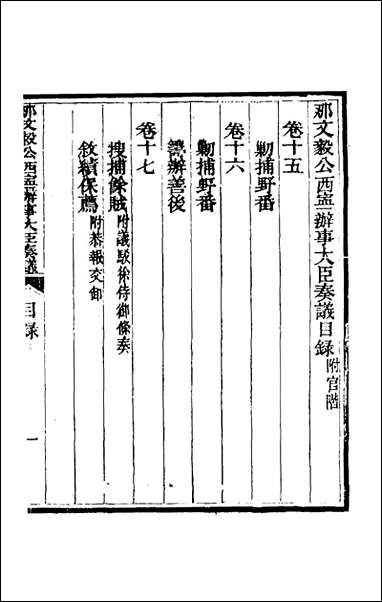 那文毅公西寧辦事大臣奏議目録附官階
卷十五
勦捕野番
卷十六
勦捕野番
籌辦善後
卷十七
搜捕餘賊附議駁徐侍御條奏
敘績保薦附恭報交卸
那文毅公西寧辦事大臣奏議
目録
一